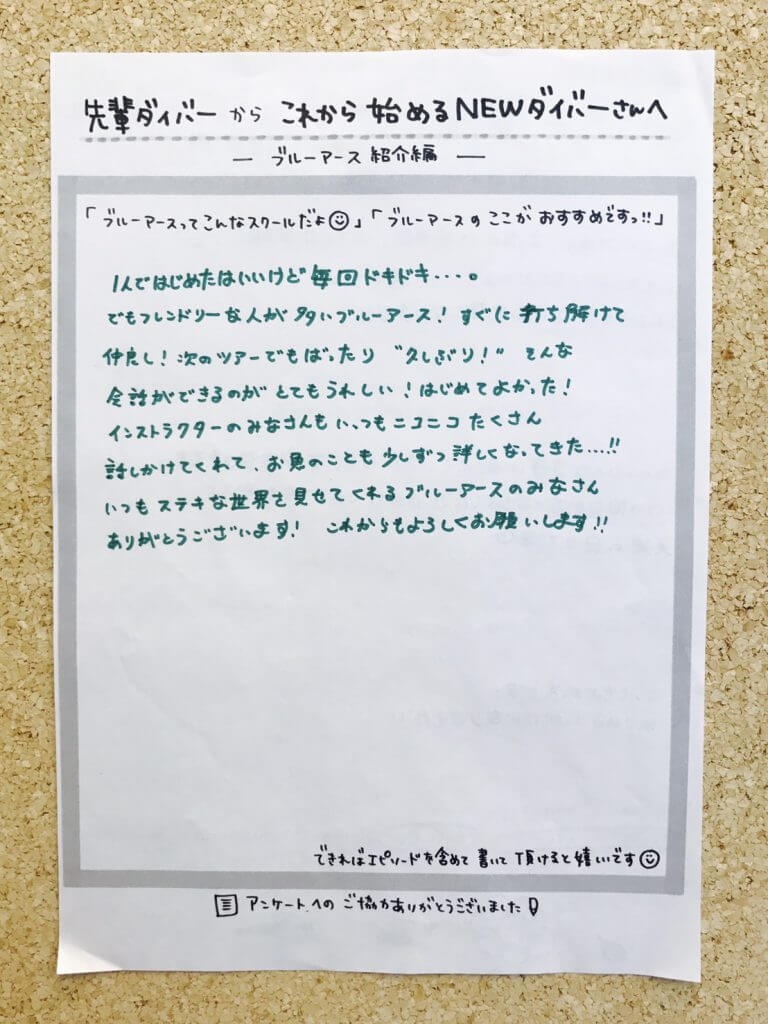 先輩ダイバーから これから始めるNEWダイバーさんへ
― ブルーアース紹介編 ―
「ブルーアースってこんなスクールだよ☺」「ブルーアースのここがおすすめですっ!!」
1人ではじめたはいいけど毎回ドキドキ・・・。
でもフレンドリーな人が多いブルーアース! すぐに打ち解けて
仲良し! 次のツアーでもばったり "久しぶり!" そんな
会話ができるのがとてもうれしい! はじめてよかった!
インストラクターのみなさんもいっつもニコニコたくさん
話しかけてくれて、お魚のことも少しずつ詳しくなってきた...!!
いつもステキな世界を見せてくれるブルーアースのみなさん
ありがとうございます! これからもよろしくお願いします!!
できればエピソードを含めて書いて頂けると嬉いです☺
アンケートへのご協力ありがとうございました